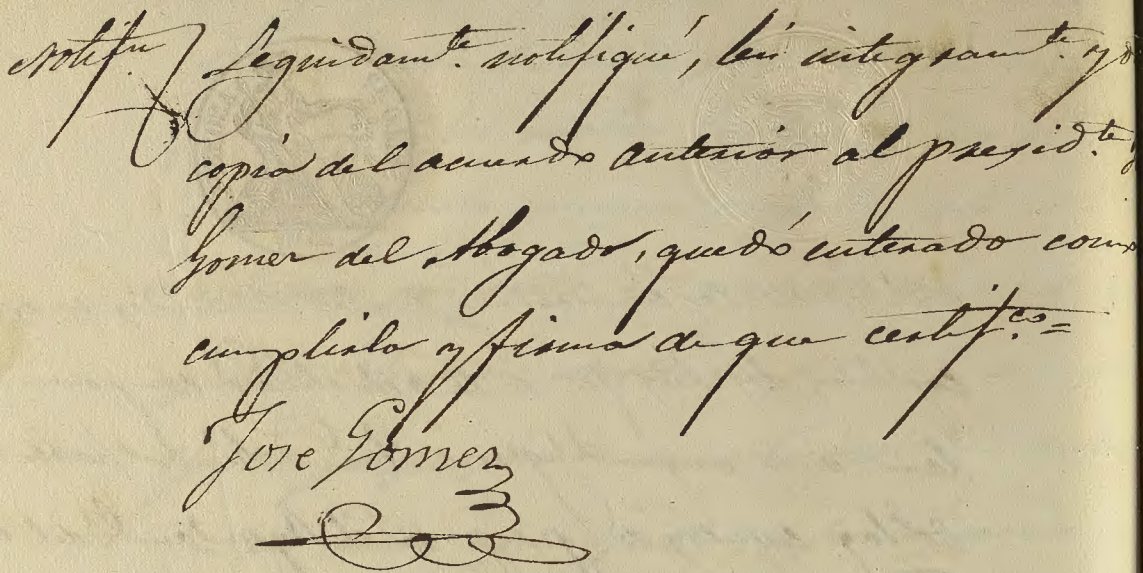 Notifn. Seguidamte. notifiqué, leí integramte. y dí
copia del acuerdo anterior al presidte.
Gomez del Abogado, quedó enterado
cumplirla y firma de que certifco.=
Jose Gómez